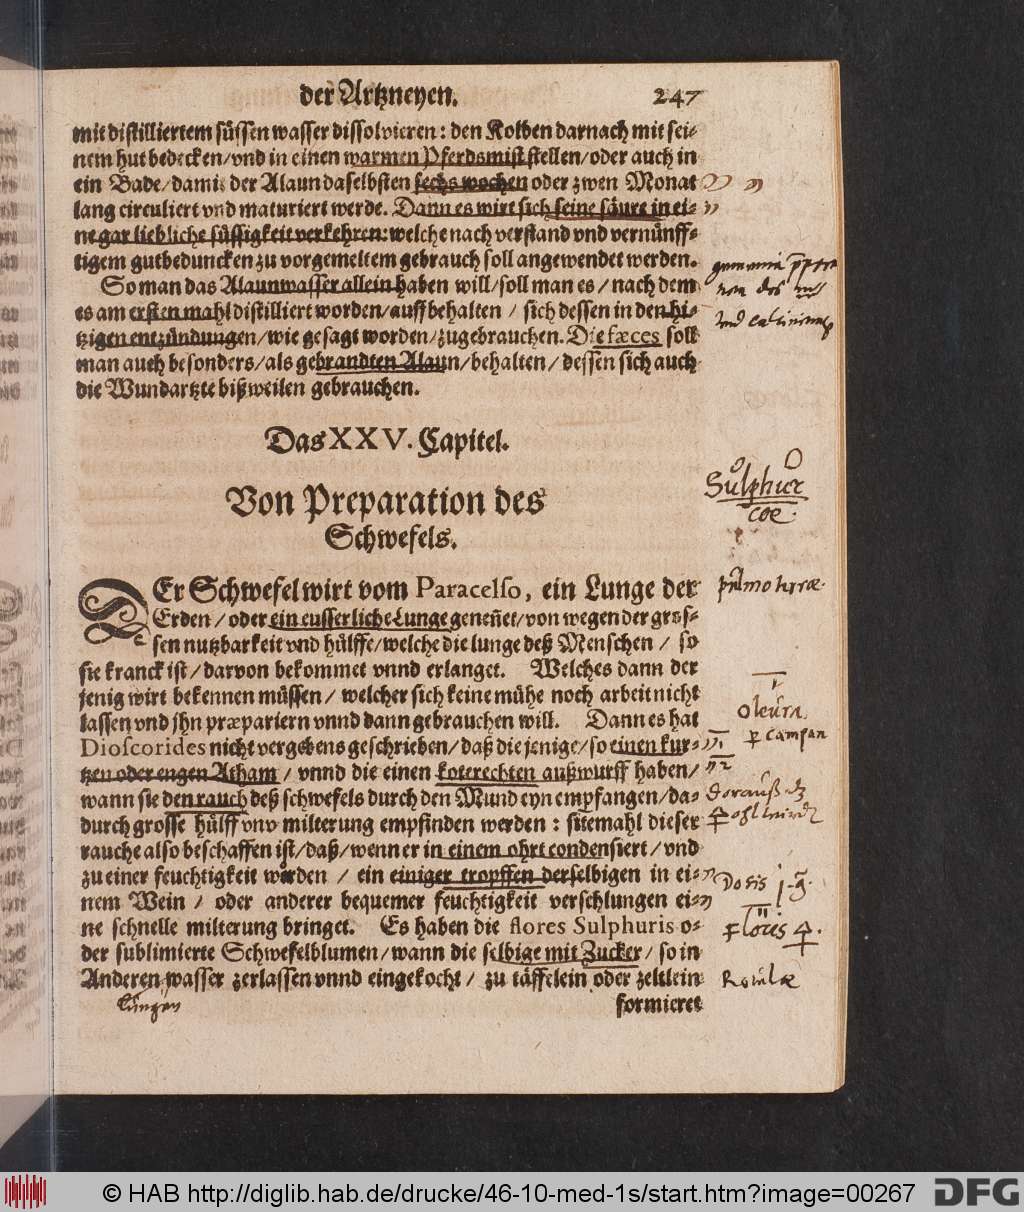 der Artzneyen. 247
mit distilliertem süssen wasser dissolvieren: den Kolben darnach mit sei-
nem hut bedecken/vnd in einen warmen Pferdsmist stellen/oder auch in
ein Bade/damit der Alaun daselbsten sechs wochen oder zwen Monat
lang circuliert vnd maturiert werde. Dann es wirt sich seine säure in ei-
ne gar liebliche süssigkeit verkehren: welche nach verstand vnd vernünff-
tigem gutbeduncken zu vorgemeltem gebrauch soll angewendet werden.
So man das Alaunwasser allein haben will/soll man es/nach dem
es am ersten mahl distilliert worden/auff behalten/ sich dessen in den hi-
tzigen entzündungen/wie gesagt worden/zugebrauchen. Die fæces soll
man auch besonders/als gebrandten Alaun/behalten/dessen sich auch
die Wundartzte bißweilen gebrauchen.
Das XXV. Capitel.
Von Preparation des
Schwefels.
DEr Schwefel wirt vom Paracelso, ein Lunge der
Erden/oder ein eusserliche Lunge geneñet/von wegen der gros-
sen nutzbarkeit vnd hülffe/welche die lunge deß Menschen/ so
sie kranck ist/darvon bekommet vnnd erlanget. Welches dann der
jenig wirt bekennen müssen/ welcher sich keine mühe noch arbeit nicht
lassen vnd jhn præpariern vnnd dann gebrauchen will. Dann es hat
Dioscorides nicht vergebens geschrieben/daß die jenige/so einen kur-
tzen oder engen Atham/ vnnd die einen koterechten außwurff haben/
wann sie den rauch deß schwefels durch den Mund eyn empfangen/da-
durch grosse hülff vnd milterung empfinden werden: sitemahl dieser
rauche also beschaffen ist/daß/wenn er in einem ohrt condensiert/vnd
zu einer feuchtigkeit würden/ ein einiger tropffen derselbigen in ei-
nem Wein/ oder anderer bequemer feuchtigkeit verschlungen ei-
ne schnelle milterung bringet. Es haben die flores Sulphuris o-
der sublimierte Schwefelblumen/wann die selbige mit Zucker/so in
Anderen wasser zerlassen vnnd eingekocht/ zu täffelein oder zeltlein
formieret
Sulphur
coe.
Oleura
p campan
Dosis
Flores
Rotulæ
lungen
© HAB http://diglib.hab.de/drucke/46-10-med-1s/start.htm?image=00267
DFG